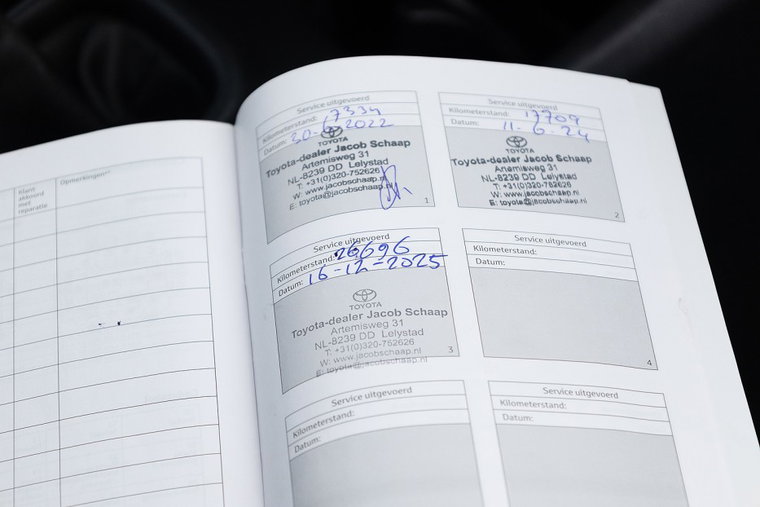 Klant
akkoord
met
reparatie
Opmerkingen
Service uitgevoerd
Kilometerstand: 17334
Datum: 30-6-2022
TOYOTA
Toyota-dealer Jacob Schaap
Artemisweg 31
NL-8239 DD Lelystad
T: +31(0)320-752626
W: www.jacobschaap.nl
E: toyota@jacobschaap.nl
1
Service uitgevoerd
Kilometerstand: 17709
Datum: 11-6-24
TOYOTA
Toyota-dealer Jacob Schaap
Artemisweg 31
NL-8239 DD Lelystad
T: +31(0)320-752626
W: www.jacobschaap.nl
E: toyota@jacobschaap.nl
2
Service uitgevoerd
Kilometerstand: 26696
Datum: 16-12-2025
TOYOTA
Toyota-dealer Jacob Schaap
Artemisweg 31
NL-8239 DD Lelystad
T: +31(0)320-752626
W: www.jacobschaap.nl
E: toyota@jacobschaap.nl
3
Service uitgevoerd
Kilometerstand:
Datum:
4
Service uitgevoerd
Kilometerstand:
Datum:
Service uitgevoerd
Kilometerstand:
Datum: